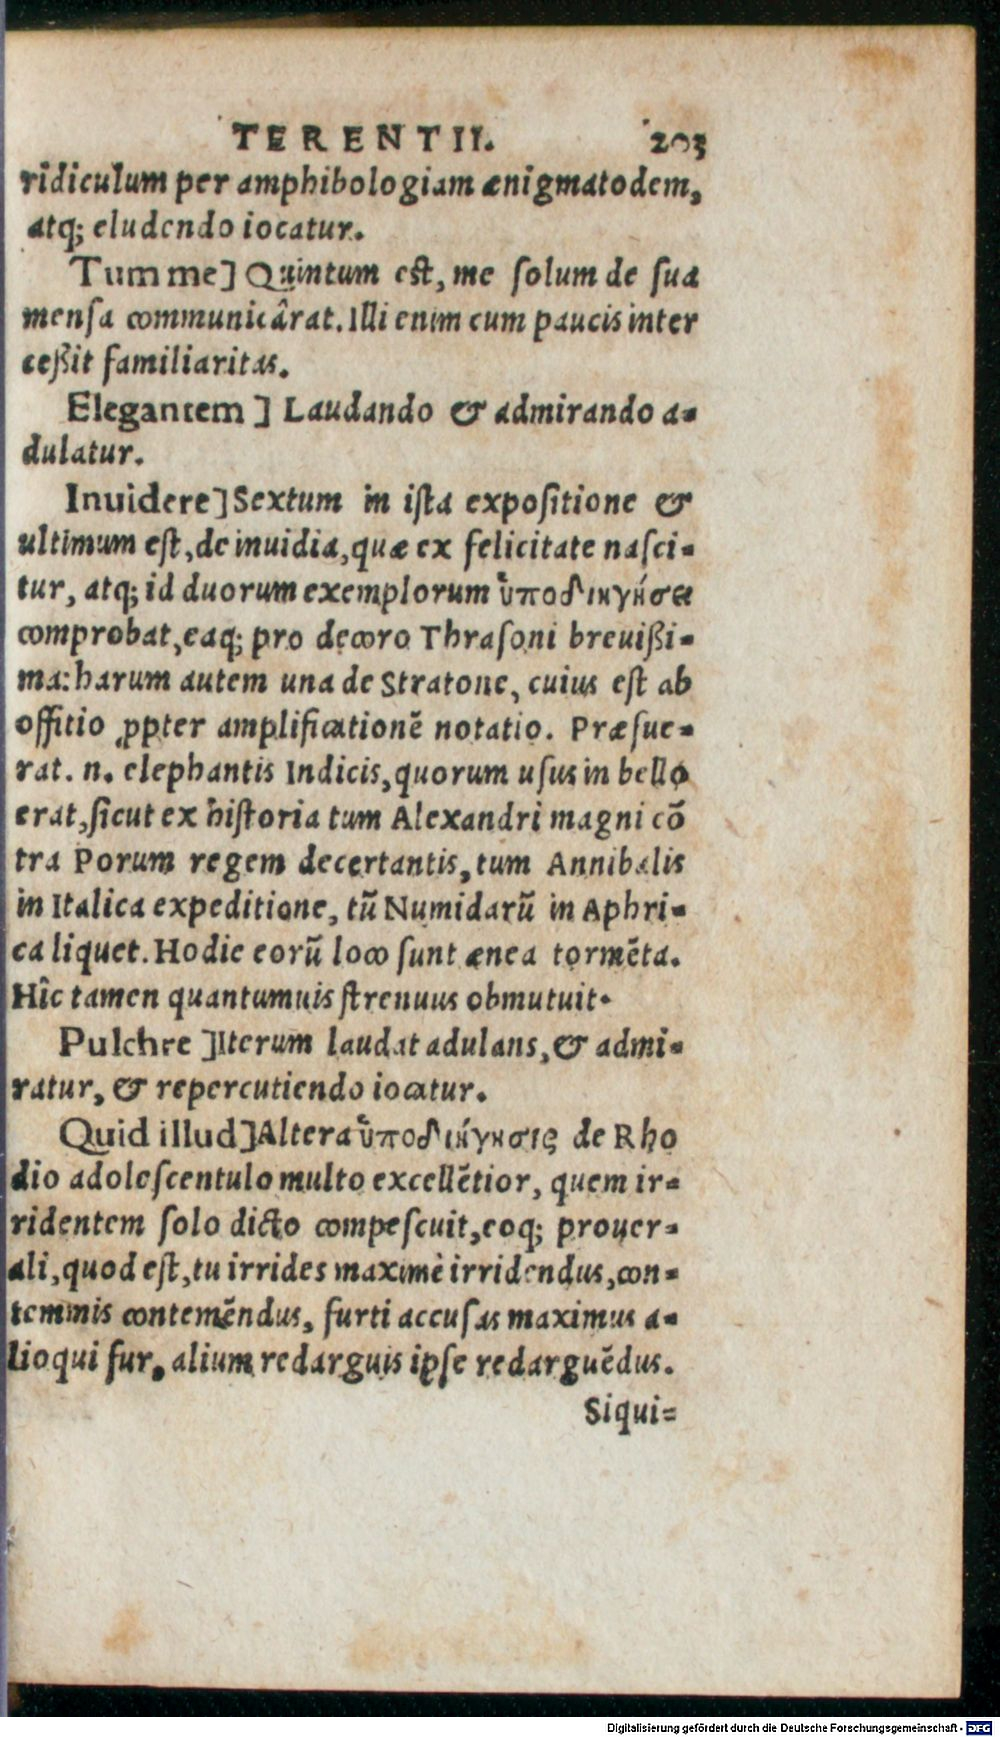 TERENTII. 203
ridiculum per amphibologiam ænigmatodem,
atq; eludendo iocatur.
Tum me] Quintum est, me ſolum de ſua
menſa communicârat. Illi enim cum paucis inter
ceßit familiaritas.
Elegantem] Laudando & admirando a-
dulatur.
Inuidere] Sextum in iſta expoſitione &
ultimum eſt, de inuidia, quæ ex felicitate naſci-
tur, atq; id duorum exemplorum ὑποδιηγήσει
comprobat, eaq; pro decoro Thraſoni breuißi-
ma: harum autem una de Stratone, cuius eſt ab
offitio ꝓpter amplificationē notatio. Præfue-
rat. n. elephantis Indicis, quorum uſus in bello
erat, ſicut ex hiſtoria tum Alexandri magni cō
tra Porum regem decertantis, tum Annibalis
in Italica expeditione, tū Numidarū in Aphri-
ca liquet. Hodie eorū loco ſunt ænea tormēta.
Hîc tamen quantumuis ſtrenuus obmutuit.
Pulchre] Iterum laudat adulans, & admi-
ratur, & repercutiendo iocatur.
Quid illud] Altera ὑποδιήγησις de Rho
dio adoleſcentulo multo excellētior, quem ir-
ridentem ſolo dicto compeſcuit, eoq; prouer-
ali, quod eſt, tu irrides maximè irridendus, con-
temnis contemēndus, furti accuſas maximus a-
lioqui fur, alium redarguis ipſe redarguēdus.
Siqui-
Digitalisierung gefördert durch die Deutsche Forschungsgemeinschaft - DFG